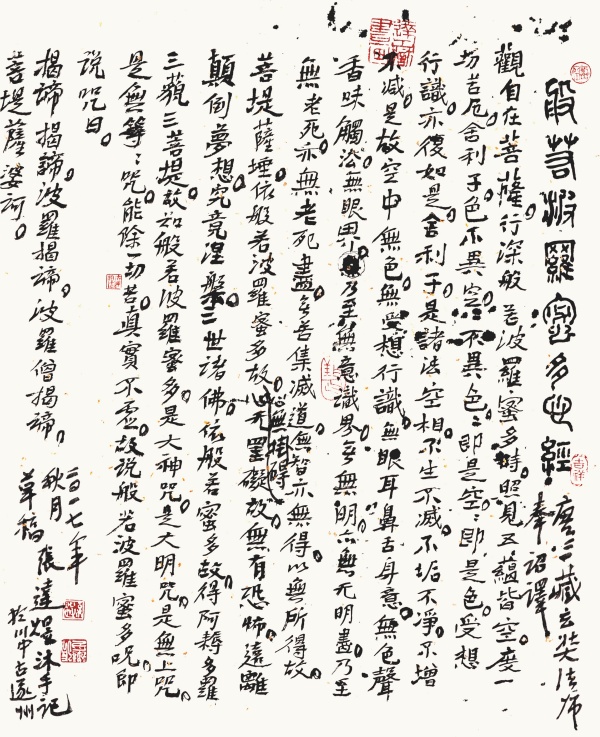 般若波羅密多心經
唐三藏玄奘法師
奉詔譯
觀自在菩薩行深般若波羅蜜多時照見五蘊皆空。度一
切苦厄。舍利子色不異空。〻不異色。〻即是空。〻即是色。受想
行識亦復如是。舍利子。是諸法空相。不生不滅。不垢不淨。不增
不減。是故空中無色。無受想行識。無眼耳鼻舌身意。無色聲
香味觸法。無眼界。乃至無意識界。無無明。亦無无明盡。乃至
無老死。亦無老死盡。無苦集滅道。無智亦無得。以無所得故。
菩提薩埵。依般若波羅蜜多故。心无罣礙故。無有恐怖。遠離
顛倒夢想。究竟涅槃。三世諸佛。依般若蜜多故。得阿耨多羅
三藐三菩提。故知般若波羅蜜多。是大神咒。是大明咒。是無上咒。
是無等〻咒。能除一切苦。真實不虛。故说般若波羅蜜多咒。即
说咒曰。
揭諦揭諦。波羅揭諦。波羅僧揭諦。
菩提薩婆訶。
二〇一七年
秋月
草稿 張達煜沐手記
於川中古遂州